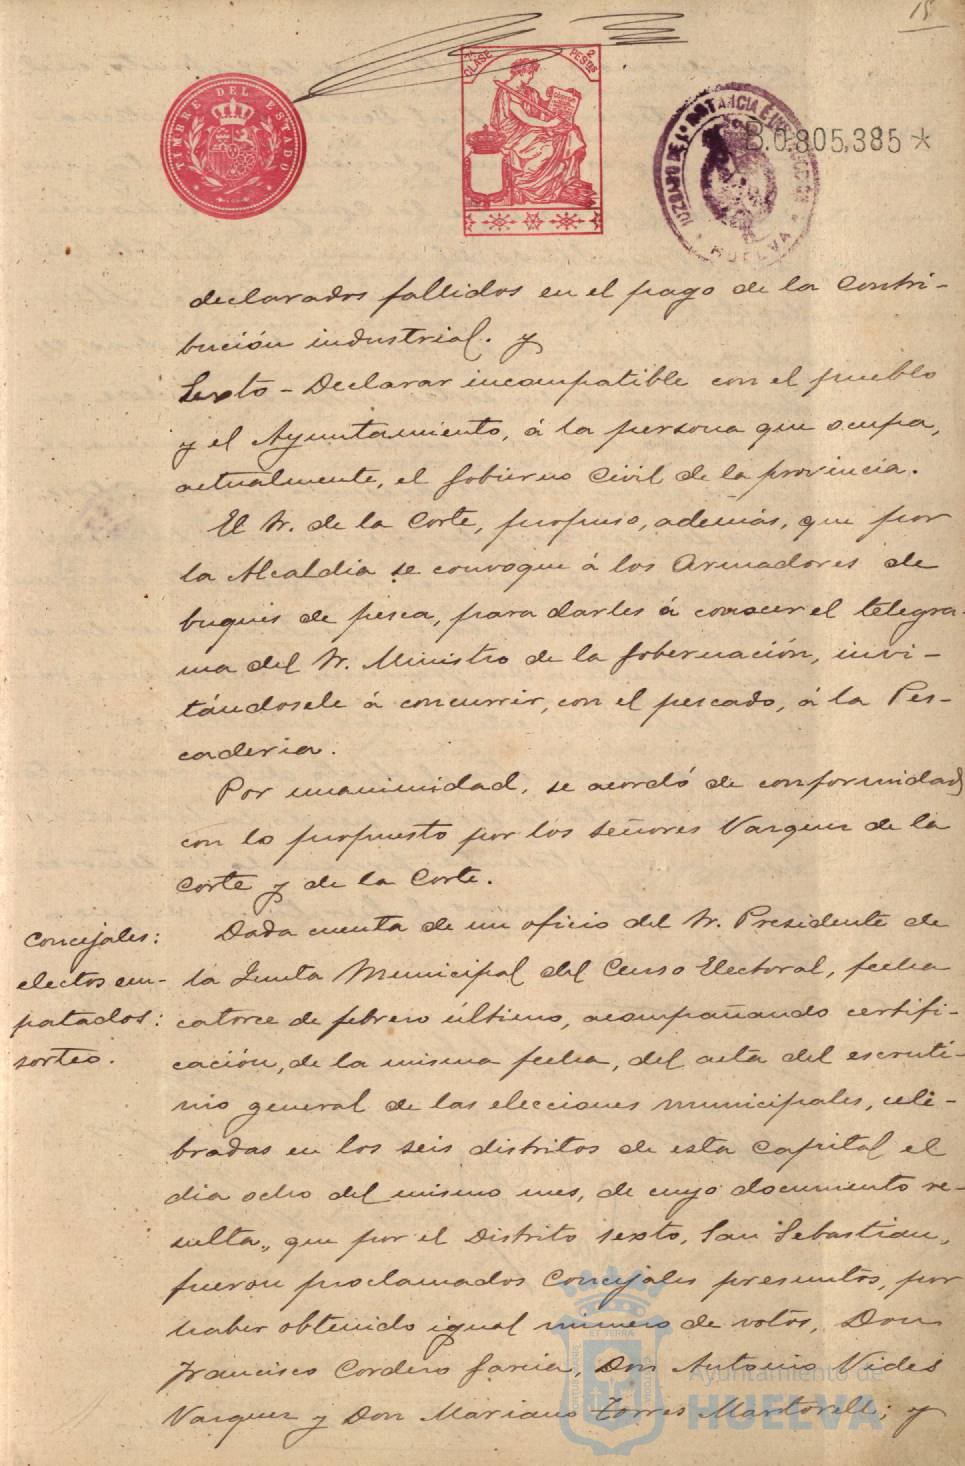 15
TIMBRE DEL ESTADO
7ª CLASE 2 PESTAS
JUZGADO DE 1ª INSTANCIA É INSTRUCCION
HUELVA
B.0.805,385 *
declarados fallidos en el pago de la Contri-
bución industrial. y
Sexto - Declarar incompatible con el pueblo
y el Ayuntamiento, á la persona que ocupa,
actualmente, el Gobierno Civil de la provincia.
El Sr. de la Corte, propuso, además, que por
la Alcaldia se convoque á los Armadores de
buques de pesca, para darles á conocer el telegra-
ma del Sr. Ministro de la Gobernación, invi-
tándosele á concurrir, con el pescado, á la Pes-
caderia.
Por unanimidad, se acordó de conformidad
con lo propuesto por los señores Vazquez de la
Corte y de la Corte.
Concejales:
electos em-
patados:
sorteo.
Dada cuenta de un oficio del Sr. Presidente de
la Junta Municipal del Censo Electoral, fecha
catorce de febrero último, acompañando certifi-
cación, de la misma fecha, del acta del escruti-
nio general de las elecciones municipales, cele-
bradas en los seis distritos de esta Capital el
dia ocho del mismo mes, de cuyo documento re-
sulta, que por el Distrito sexto, San Sebastian,
fueron proclamados Concejales presuntos, por
haber obtenido igual número de votos, Don
Francisco Cordero Garcia, Don Antonio Vides
Vazquez y Don Mariano Torres Martorell; y
Ayuntamiento de
HUELVA